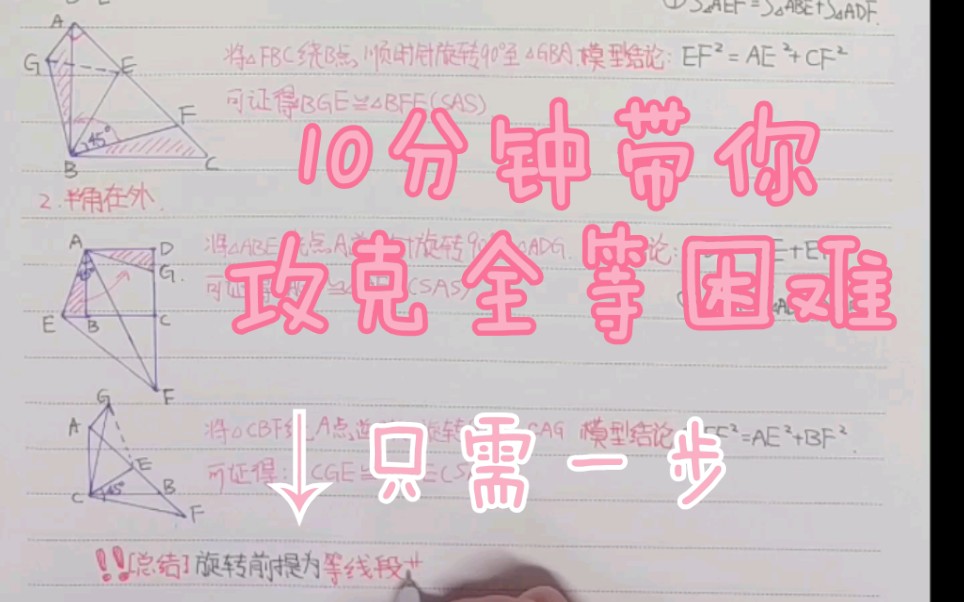 ①S△AEF=S△ABE+S△ADF.
A
G
E
F
45°
B
C
将△FBC绕B点,顺时针旋转90°至△GBA.模型结论: EF²=AE²+CF²
可证得BGE≌△BFE(SAS)
10分钟带你
2.半角在外.
A
D
G.
E
B
C
F
将△ABE
旋转90
△ADG.
论:
可
(SAS)
攻克全等困难
G
A
E
C
45°
B
F
将△CBF绕A点逆
旋转
CAG 模型结论
²=AE²+BF².
可证得:
CGE≌
↓只需一步
!![总结]旋转前提为等线段